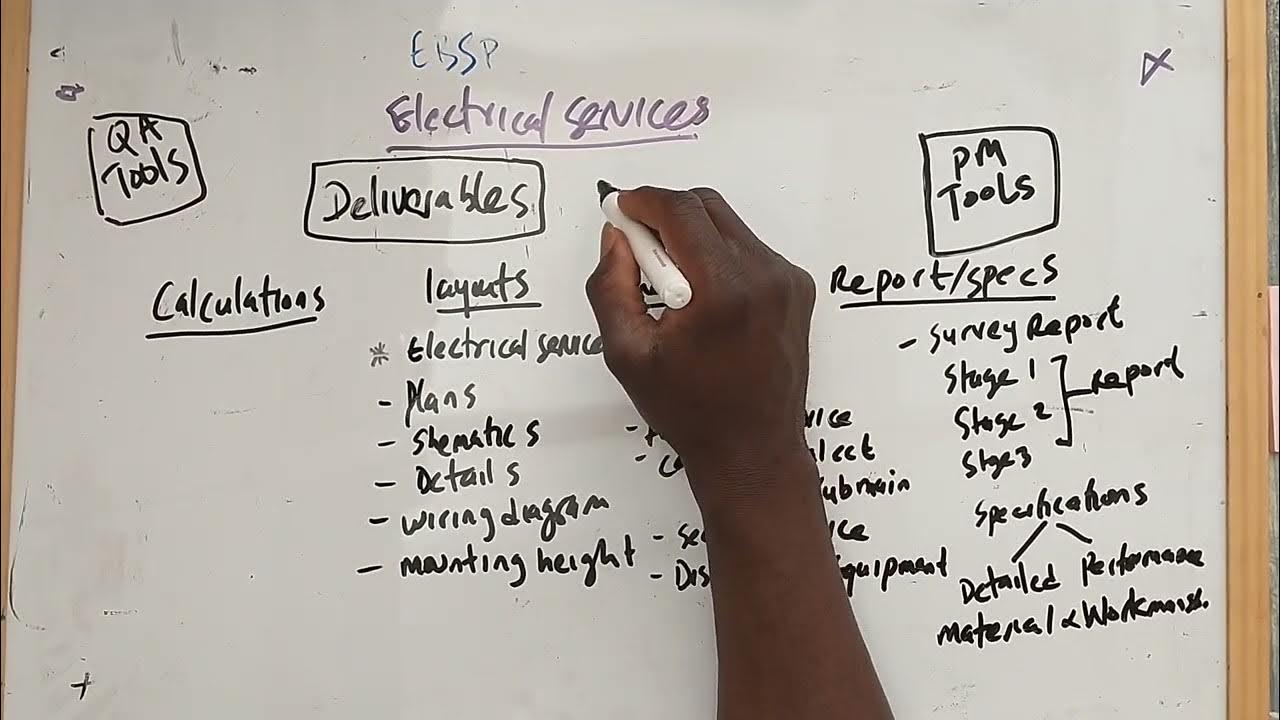 EBSP
Electrical services
QA
TOOLS
Deliverables
PM
TOOLS
Calculations
layouts
* Electrical service
- Plans
- Shematics
- Details
- wiring diagram
- mounting height
ubmain
- Dis
quipment
Report/specs
- Survey Report
Stage 1
Stage 2
Stge3
Report
Specifications
Detailed
Performance
Material &